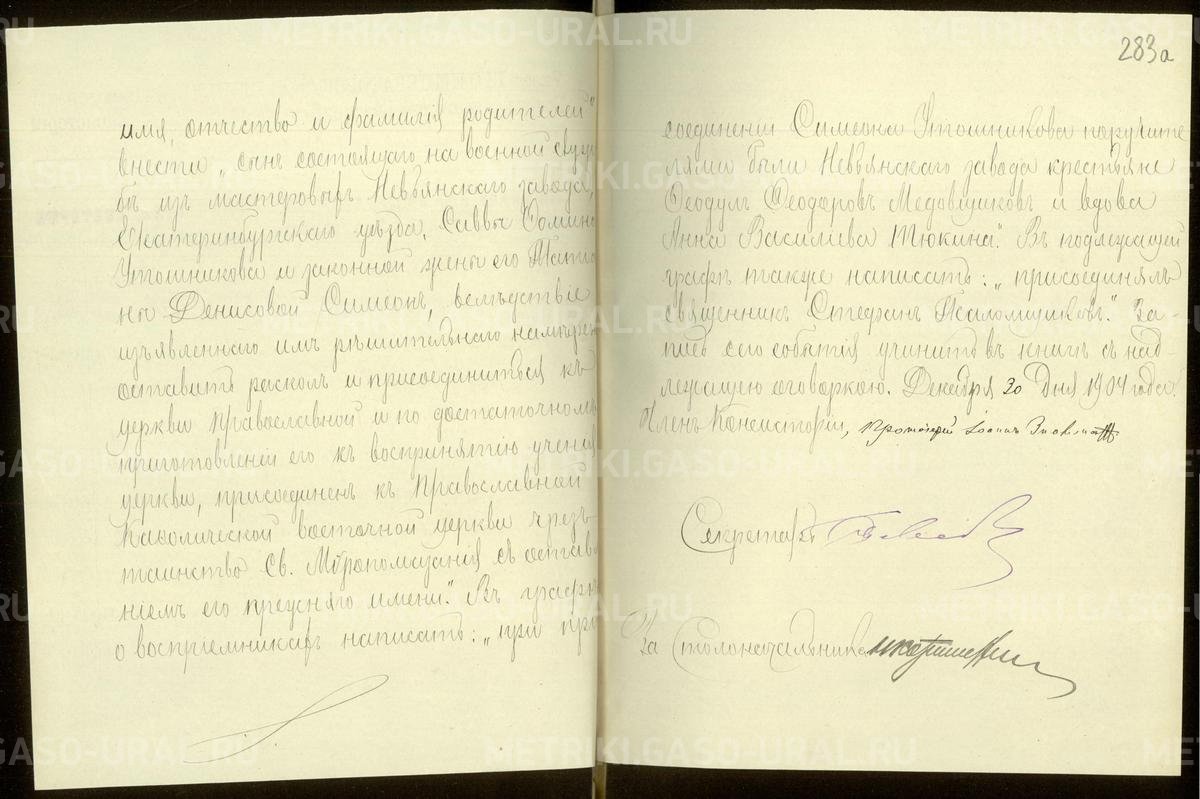 283а
имя, отчество и фамилія родителей"
внести „сынъ состоящаго на военной служ
бѣ изъ мастеровыхъ Невьянскаго завода,
Екатеринбургскаго уѣзда, Саввы Фомина
Утошникова и законной жены его Татiа
ны Денисовой Симеонъ, вслѣдствіе
изъявленнаго имъ рѣшительнаго намѣре
оставить расколъ и присоединиться къ
церкви Православной и по достаточномъ
приготовленіи его къ воспринятію ученія
церкви, присоединенъ къ Православной
Каѳолической восточной церкви чрезъ
таинство Св. Мѵропомазанія съ оставл
ніемъ его прежняго имени". Въ графѣ
о воспріемникахъ написать: „при при
соединеніи Симеона Утошникова поручите
лями были Невьянскаго завода крестьяне
Ѳеодулъ Ѳеодоровъ Медовщиковъ и вдова
Анна Василіева Тюкина". Въ подлежащей
графѣ также написать: „присоединялъ
священникъ Стефанъ Псаломщиковъ". За-
пись сего событія учинить въ книгѣ съ над-
лежащею оговоркою. Декабря 30 дня 1904 года.
Членъ Консисторіи, Протоіерей Іоаннъ
Секретарь
За Столоначальника
METRIKI.GASO-URAL.RU